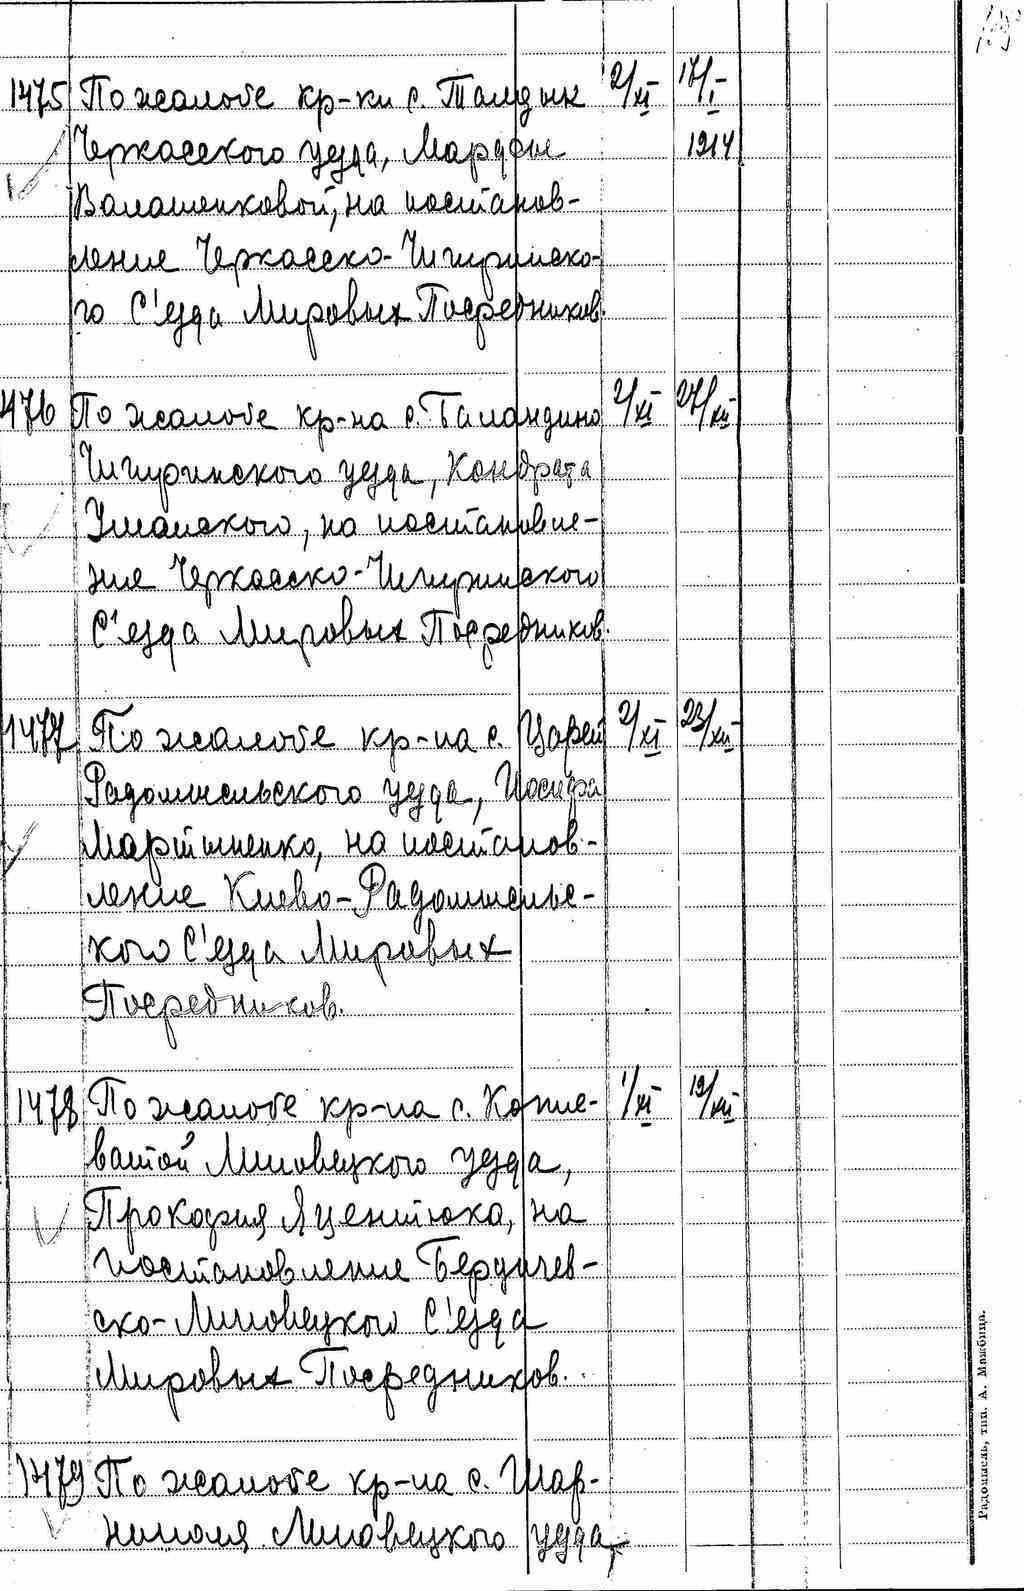 1475 По жалобе кр-ки с. Талдык 2/XI 17/I
Черкасского уезда, Марфы 1914
Валашенковой, на постанов-
ление Черкасско-Чигиринско-
го С'езда Мировых Посредников.
476 По жалобе кр-на с. Баландино 2/XI 27/XII
Чигиринского уезда, Кондрата
Уманского, на постановле-
ние Черкасско-Чигиринского
С'езда Мировых Посредников.
1477 По жалобе кр-на с. 2/XI 23/XII
Радомысльского уезда, Иосифа
Мартыненко, на постанов-
ление Киево-Радомысльс-
кого С'езда Мировых
Посредников.
1478 По жалобе кр-на с. Копие- 1/XI 19/XII
ватой Липовецкого уезда,
Прокофия Яцентюка, на
постановление Бердичев-
ско-Липовецкого С'езда
Мировых Посредников.
1479 По жалобе кр-на с. Шар-
ниполя Липовецкого уезда,
Радомысль, тип. А. Мажбица.